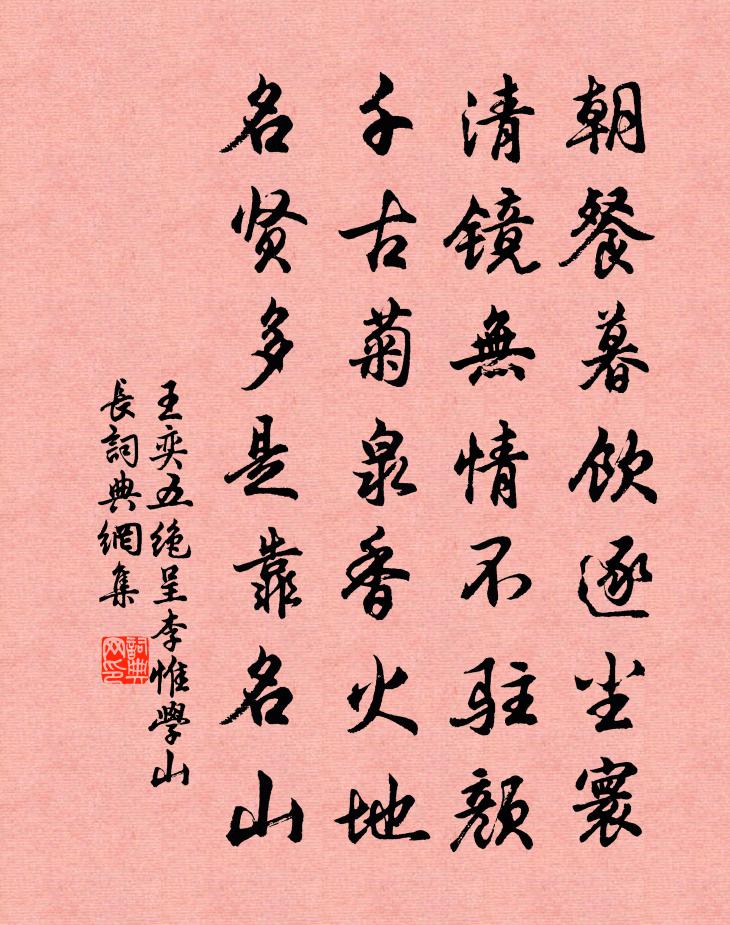 朝餐暮飲逐尘寰
清镜無情不驻颜
千古菊泉香火地
名贤多是靠名山
王奕五绝呈李惟學山
長詞典網集
詞典网印